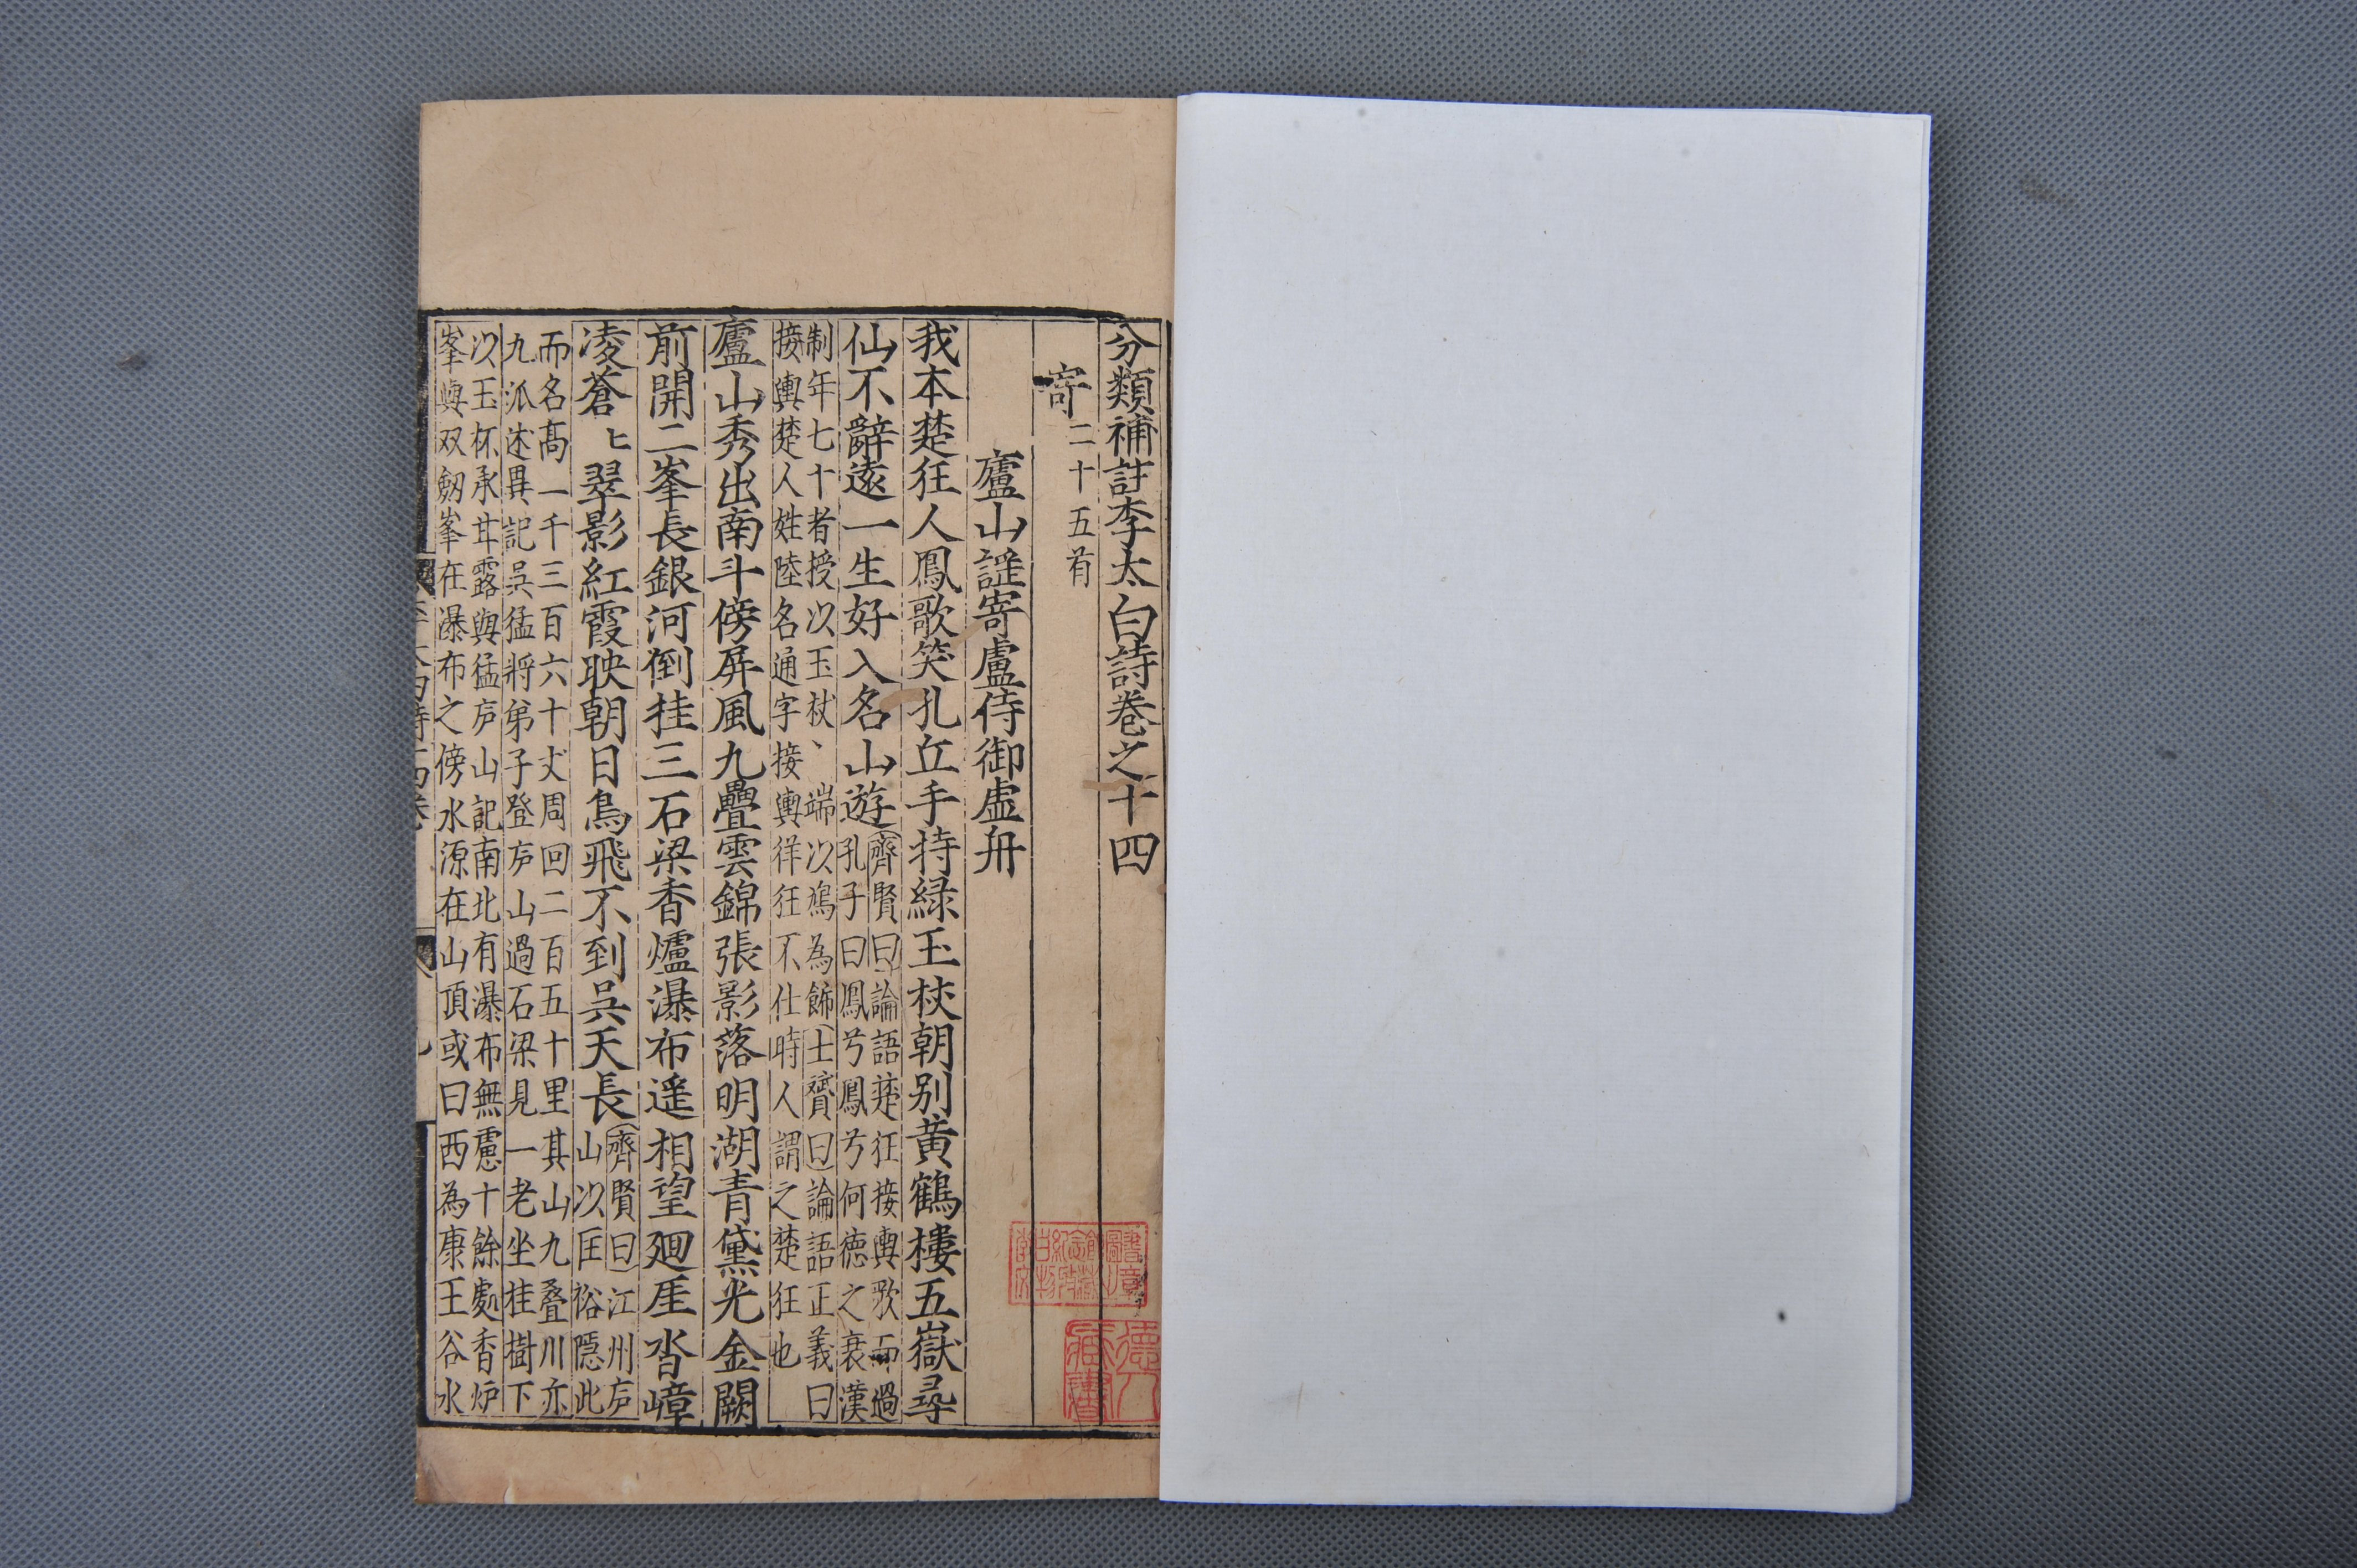 分類補註李太白詩卷之十四
寄二十五首
廬山謡寄盧侍御虛舟
我本楚狂人鳳歌笑孔丘手持緑玉杖朝别黄鶴樓五嶽尋
仙不辭逺一生好入名山遊
齊賢曰論語楚狂接輿歌而過
孔子曰鳳兮鳳兮何徳之衰漢
制年七十者授以玉杖、端以鳩為飾士贇曰論語正義曰
接輿楚人姓陸名通字接輿徉狂不仕時人謂之楚狂也
廬山秀出南斗傍屏風九疊雲錦張影落明湖青黛光金闕
前開二峯長銀河倒挂三石梁香爐瀑布遥相望廻崖沓嶂
凌蒼匕翠影紅霞映朝日鳥飛不到吳天長
齊賢曰江州庐
山以匡裕隱此
而名髙一千三百六十丈周回二百五十里其山九叠川亦
九派述異記吳猛將弟子登庐山過石梁見一老坐桂樹下
以玉杯承甘露與猛庐山記南北有瀑布無慮十餘處香炉
峯與双劔峯在瀑布之傍水源在山頂或曰西為康王谷水